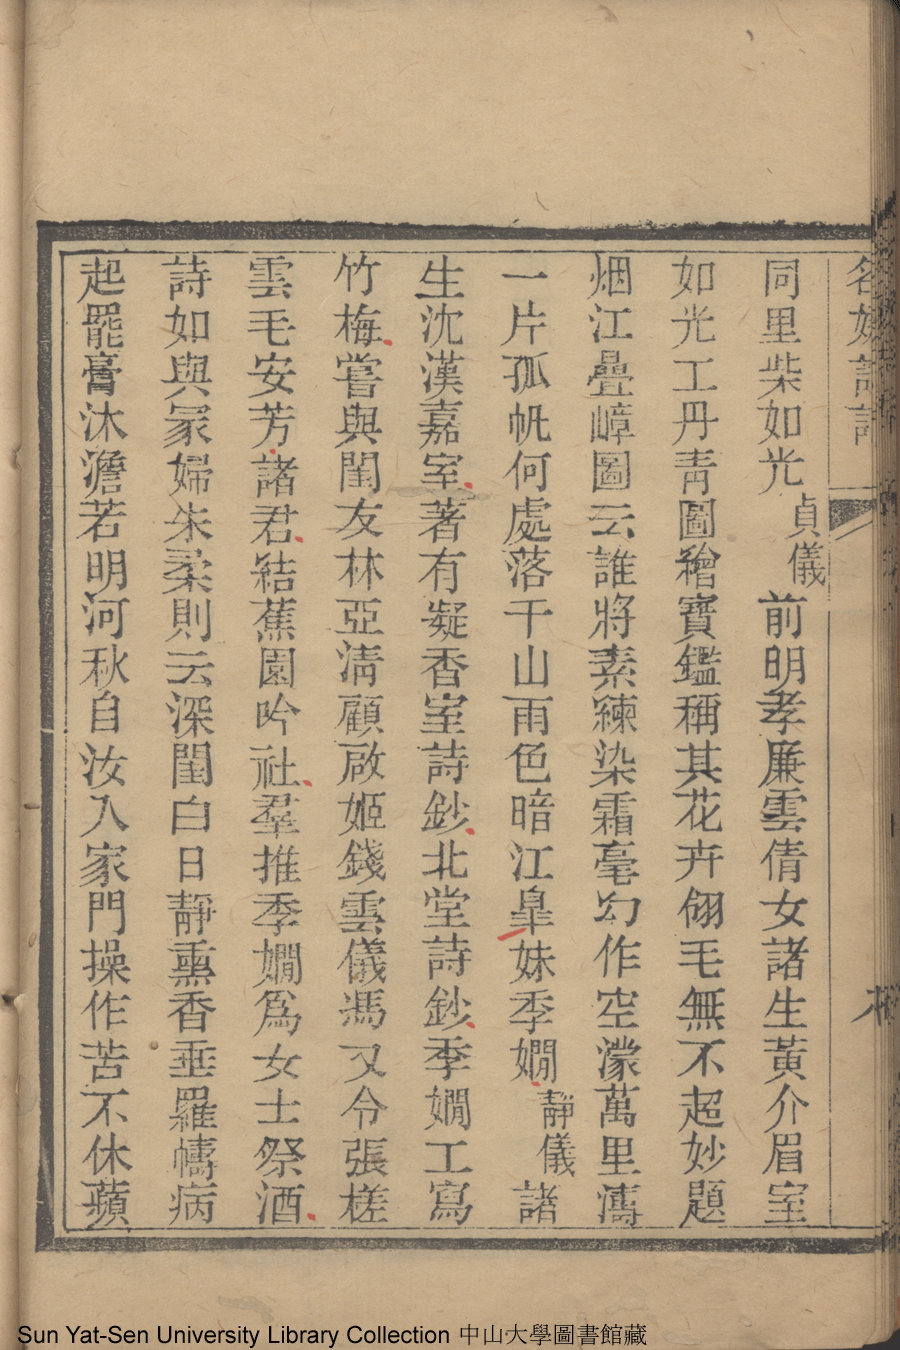 名媛詩話
同里柴如光貞儀前明孝廉雲倩女諸生黃介眉室
如光工丹青圖繪寶鑑稱其花卉翎毛無不超妙題
烟江疊嶂圖云誰將素練染霜毫幻作空濛萬里濤
一片孤帆何處落千山雨色暗江臯妹季嫺靜儀諸
生沈漢嘉室著有凝香室詩鈔北堂詩鈔季嫺工寫
竹梅嘗與閨友林亞淸顧啟姬錢雲儀馮又令張槎
雲毛安芳諸君結蕉園吟社羣推季嫺爲女士祭酒
詩如與冢婦朱柔則云深閨白日靜熏香垂羅幬病
起罷膏沐澹若明河秋自汝入家門操作苦不休蘋
Sun Yat-Sen University Library Collection 中山大學圖書館藏